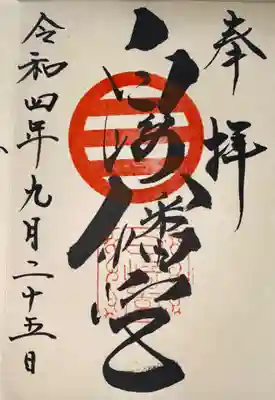 奉拝
八幡宮
令和四年九月二十五日